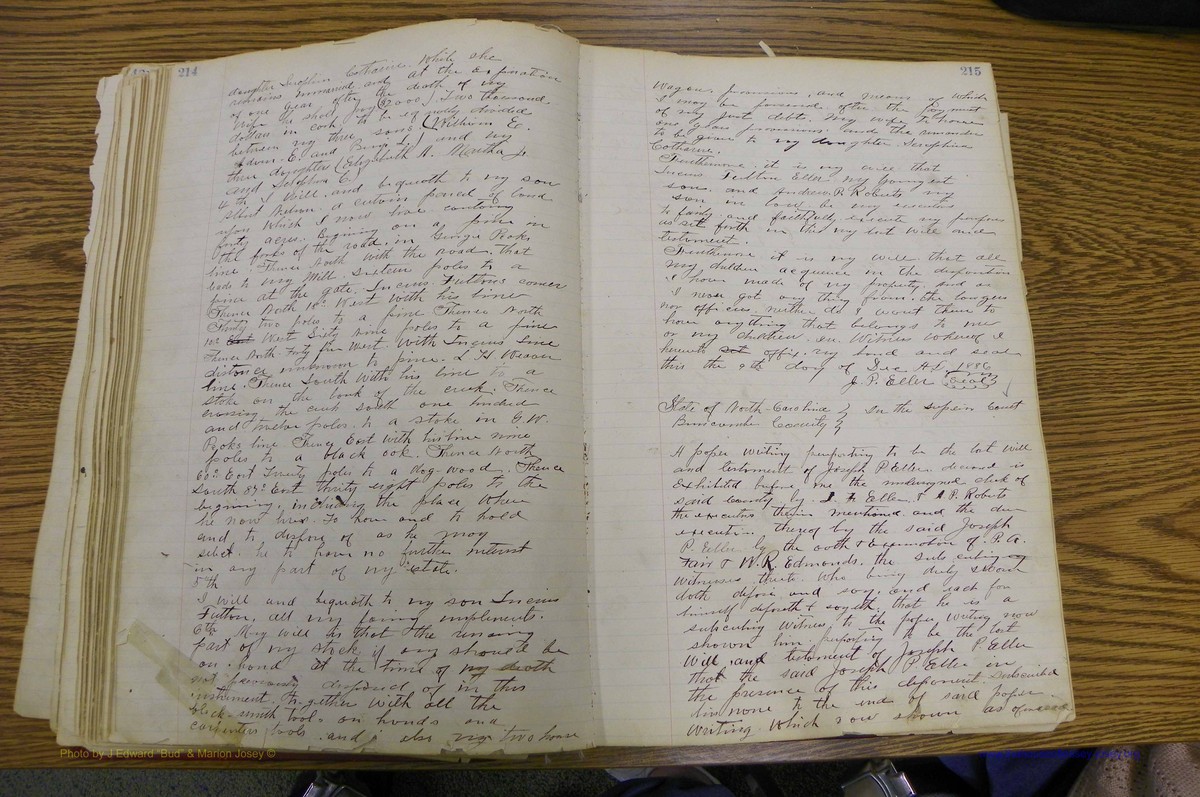 214
daughter Seraphin Catharine. While she
remains unmarried and at the expiration
of one year after the death of my
wife he shall pay ($2000.) Two thousand
dollars in cash to be equally divided
between my three sons (William E.
Adam. E. and Benj. L) and my
three daughters (Elizabeth A. Martha J.
and Seraphin C.)
4th I will and bequeath to my son
Albert Nelson, a certain parcel of land
upon which I now live containg
forty acres. Begining on a pine in
the forks of the road, in George Pooks
line. Thence North with the road, that
leads to my Mill Sixteen poles to a
pine at the gate. Lucius Fultons corner
Thence North 18° West with his line
Thirty two poles to a pine Thence North
West Sixty nine poles to a pine
Thence North Forty five West. with Lucius line
distance unknown to pine. L H Weaver
line. Thence South with his line to a
stake on the bank of the creek. Thence
crossing the creek south one hundred
and twelve poles. to a stake in G. W.
Pooks line Thence East with his line nine
poles to a black oak. Thence North
60° East Twenty poles to a dog-wood. Thence
South 87° East thirty eight poles to the
begining, including the place where
he now lives. To have and to hold
and to dispose of as he may
select. he to have no further interest
in any part of my estate.
5th
I will and bequeath to my son Lucius
Fulton, all my faming impliments.
6th My will is that the remaing
part of my stock if any should be
on hand at the time of my death
not disposed of in this
instrument. to gether with all the
black-smith tools on hands and
carpenters tools. and also my two horse
Photo by J Edward "Bud" & Marion Josey ©
215
Wagon, provisions, and means of which
I may be possessed after the payment
of my just debts. My wife to have
one years provisions and the remainder
to be given to my daughter Seraphin
Catharine.
Furthermore it is my will that
Lucius Fulton Eller, my youngest
son, and Andrew P. Roberts my
son in law be my executors
to fairly and faithfully execute my purposes
as set forth in this my last will and
testament.
Furthermore it is my will that all
my children acquiesce in the disposition
I have made of my property, and as
I never got any thing from the lawyers
nor officers, neither do I want them to
have anything that belongs to me
or my children. In Witness whereof I
hereunto set affix my hand and seal
this the 9th day of Dec A.D. 1886
J. P. Eller (Seal)
State of North-Carolina } In the Superior Court
Buncombe County }
A paper writing purporting to be the last will
and testament of Joseph P Eller, deceased is
exhibited before me the undersigned clerk of
said County by L F Eller & A P. Roberts
the executors therein mentioned and the due
execution thereof by the said Joseph
P. Eller by the oath & examination of P. A.
Farr & W. R. Edmonds, the subscribing
witnesses thereto. Who being duly sworn
doth depose and say, and each for
himself deposeth & sayeth, that he is a
subscribing witness to the paper writing now
shown him purporting to be the last
will and testament of Joseph P Eller
that the said Joseph P Eller in
the presence of this deponent subscribed
his name to the end of said paper
writing which is now shown as aforesaid